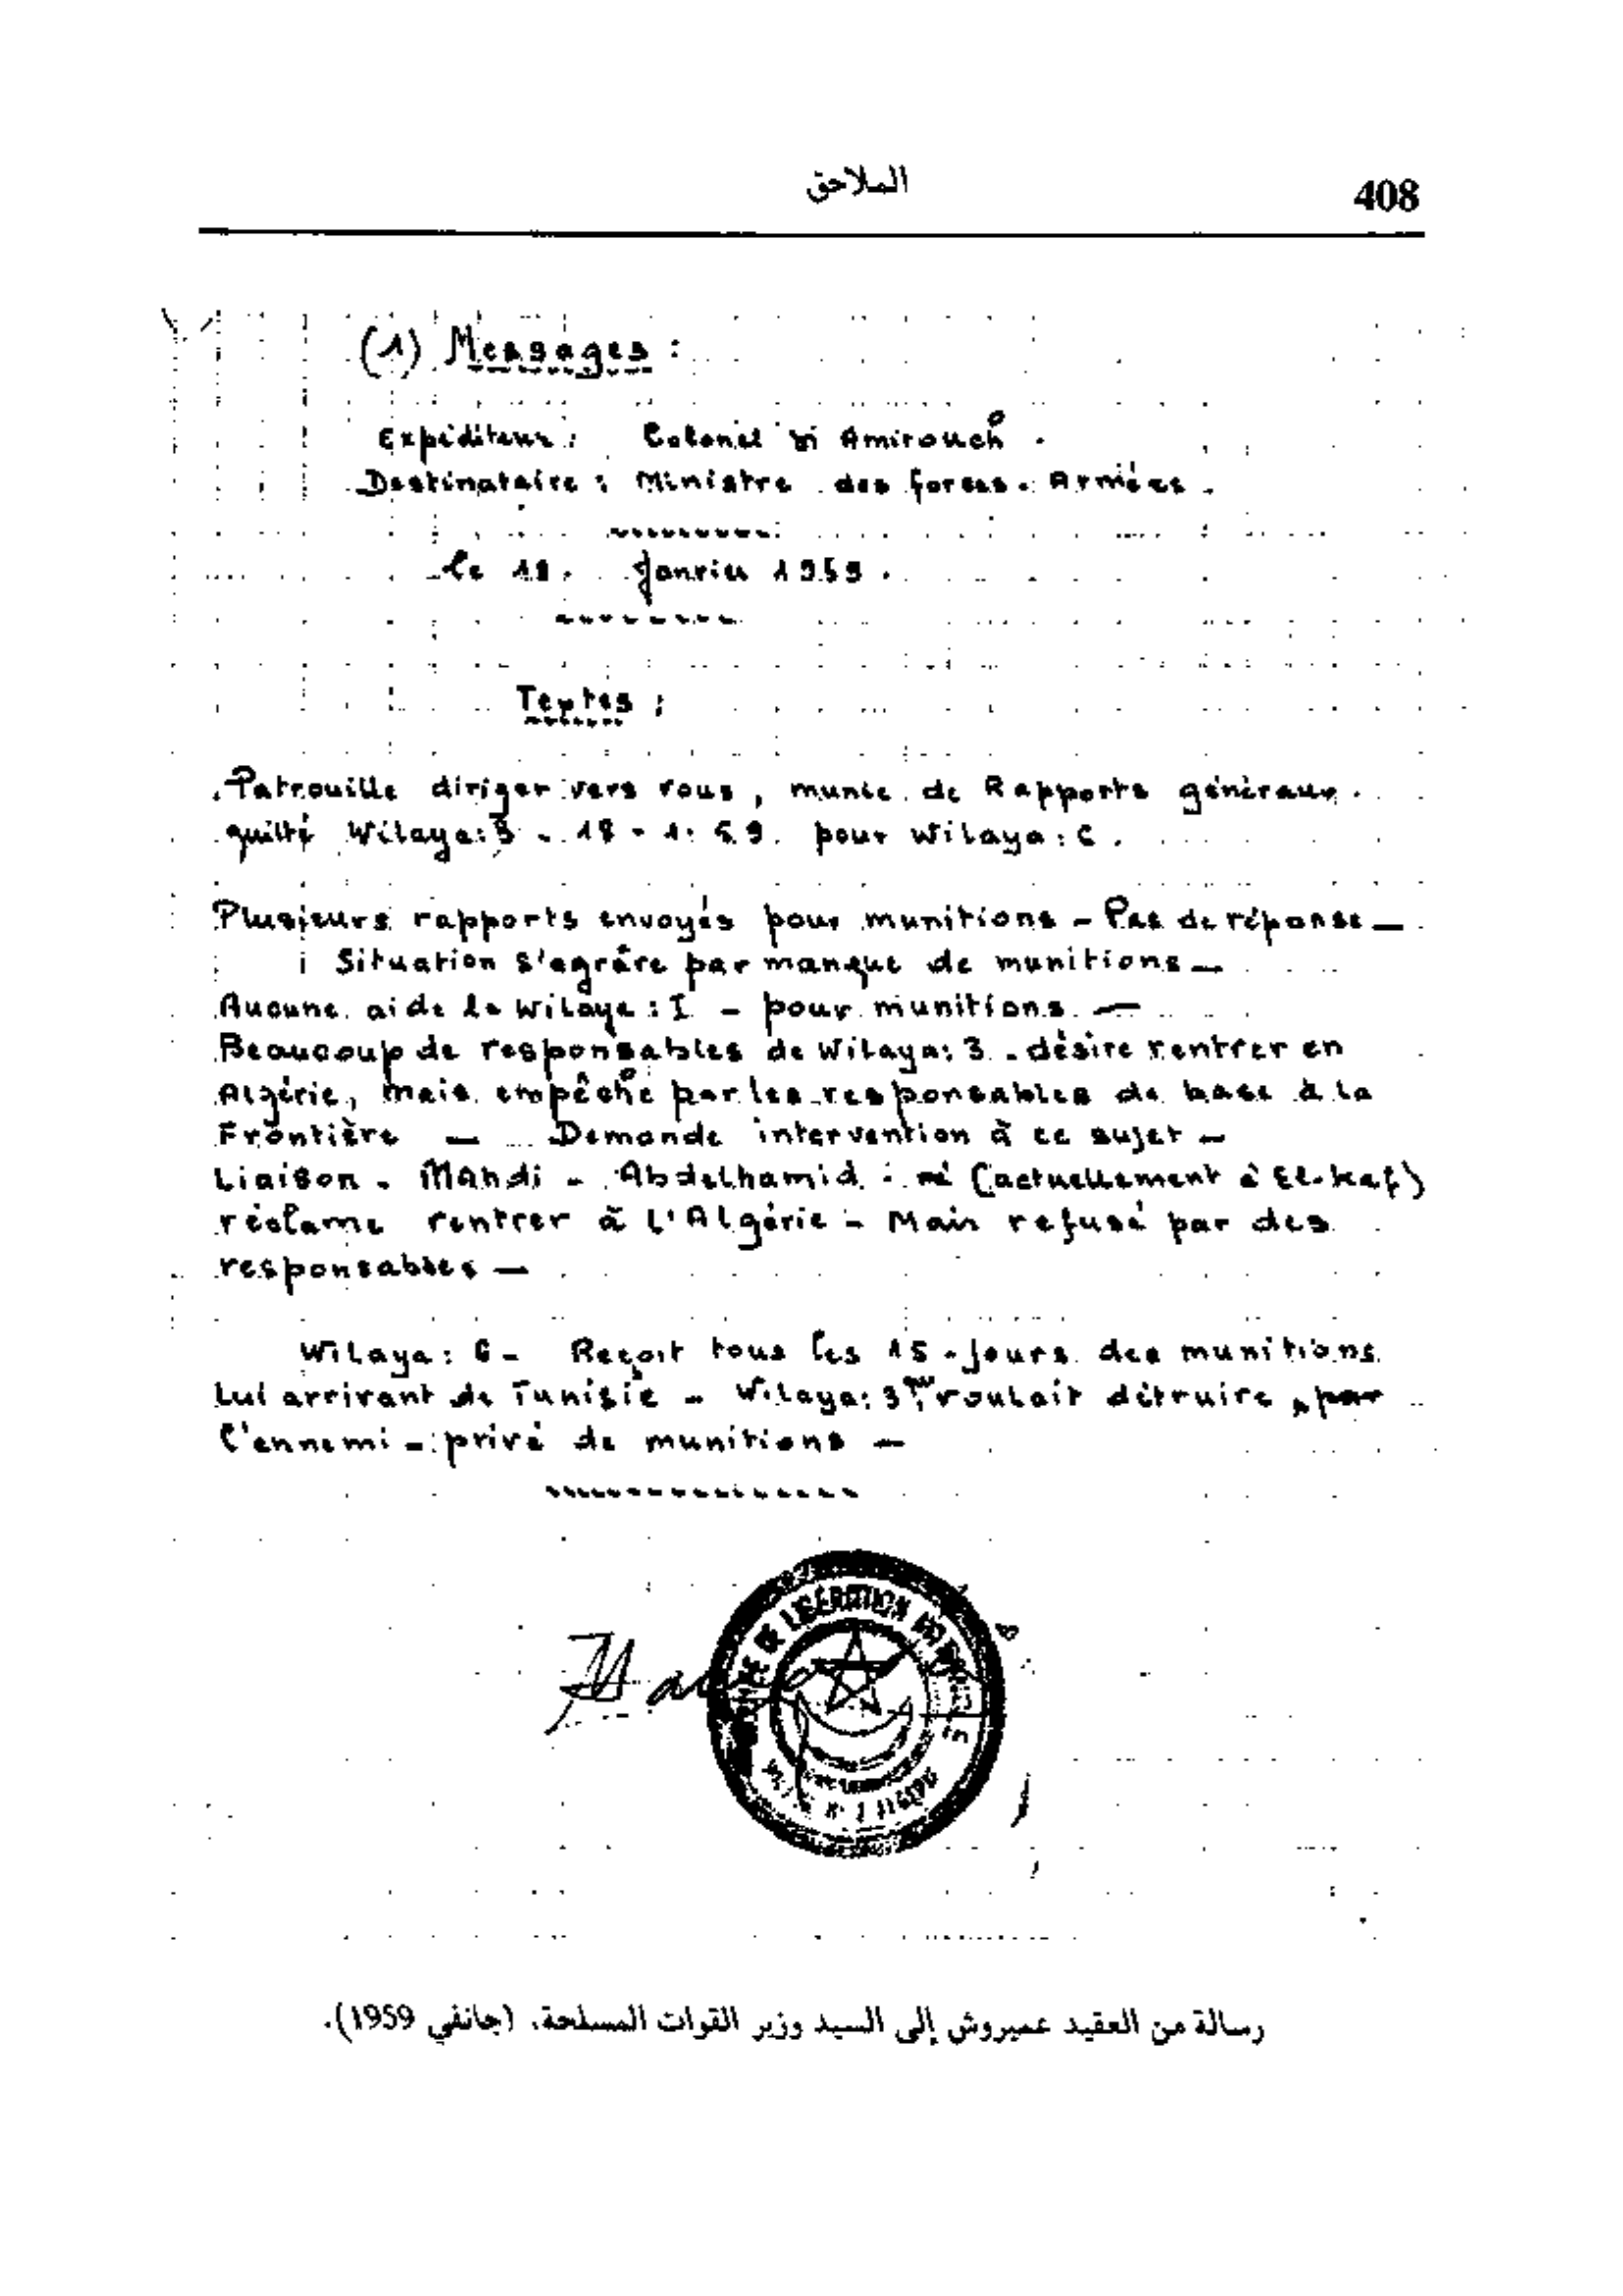 الملاحق
408
(1) Messages :
Expéditeur : Colonel Si Amirouch .
Destinataire : Ministre des forces . Armées .
le 19 . Janvier 1959 .
Textes :
Patrouille diriger vers vous , munie . de Rapports généraux .
quitté Wilaya : 3 - 18 - 1 . 59 . pour Wilaya : 6 .
Plusieurs rapports envoyés pour munitions - Pas de réponse —
Situation s'agrâve par manque de munitions —
Aucune aide la Wilaya : I - pour munitions —
Beaucoup de responsables de Wilaya : 3 - désire rentrer en
Algérie , mais empêché par les responsables de base à la
Frontière — Demande intervention à ce sujet —
Liaison - MAhdi - Abdelhamid : (actuellement à El-Kef)
réclame rentrer à l'Algérie - Mais refusé par des
responsables —
Wilaya : 6 - Reçoit tous les 15 - Jours des munitions
lui arrivant de Tunisie - Wilaya : 3 voulait détruire par
l'ennemi - privé de munitions —
DE LIBERATION
رسالة من العقيد عميروش إلى السيد وزير القوات المسلحة، (جانفي 1959).